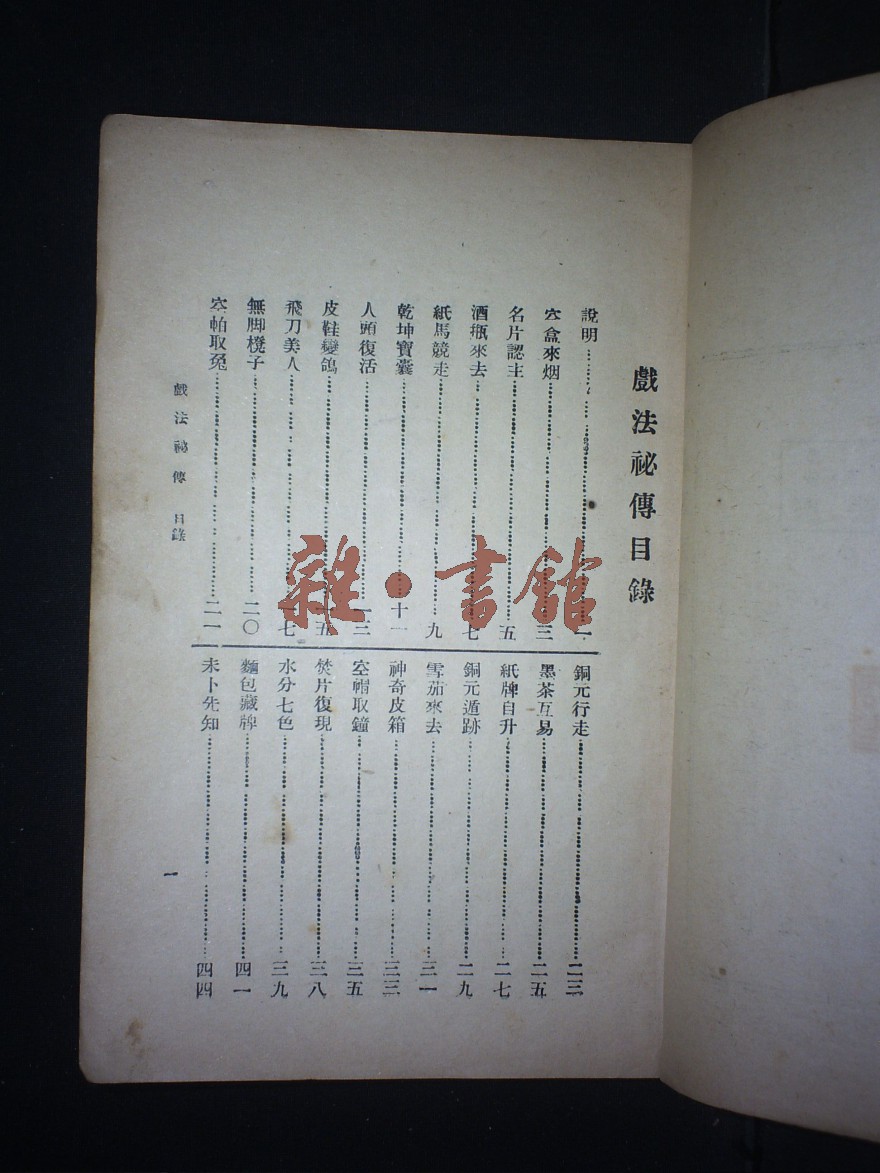 戲法祕傳目錄
說明……一
空盒來烟……三
名片認主……五
酒瓶來去……七
紙馬競走……九
乾坤寶囊……十一
人頭復活……一三
皮鞋變鴿……五
飛刀美人……七
無脚櫈子……二〇
空帕取兔……二一
銅元行走……二三
墨茶互易……二五
紙牌自升……二七
銅元遁跡……二九
雪茄來去……三一
神奇皮箱……三三
空帽取鐘……三五
焚片復現……三八
水分七色……三九
麵包藏牌……四一
未卜先知……四四
戲法祕傳 目錄
一
雜·書館